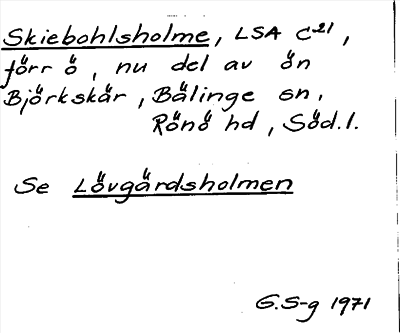 Skiebohlsholme, LSA C21,
förr ö, nu del av ön
Björkskär, Bälinge sn,
Rönö hd, Söd.l.
Se Lövgärdsholmen
G.S-g 1971